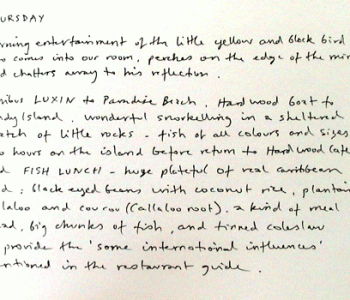 URSDAY
rning entertainment of the little yellow and black bird
o comes into our room, perches on the edge of the mirr
d chatters away to his reflection.
nibus LUXIN to Paradise Beach. Hardwood boat to
ndy Island. wonderful snorkelling in a sheltered
atch of little rocks - fish of all colours and sizes
o hours on the island before return to Hardwood Cafe
d FISH LUNCH - huge plateful of real caribbean
d: black eyed beans with coconut rice, plantain
llaloo and coucou (Callaloo root), a kind of meal
ad, big chunks of fish, and tinned coleslaw
provide the 'some international influences'
ntioned in the restaurant guide.